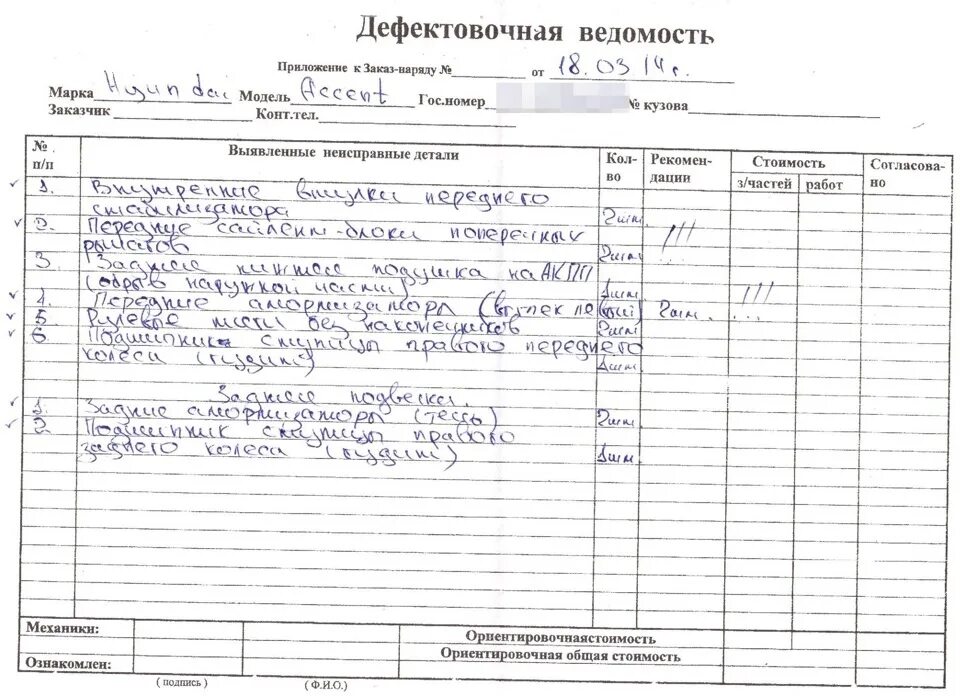 Дефектовочная ведомость
Приложение к Заказ-наряду № от 18.03 14г.
Марка Hyundai Модель Accent Гос.номер № кузова
Заказчик Конт.тел.
№ п/п Выявленные неисправные детали Кол-во Рекомен-дации Стоимость з/частей работ Согласова-но
1. Внутренние втулки переднего
стабилизатора 2шт.
2. Передние сайлент-блоки поперечных !!!
рычагов 2шт. ...
3. Заднее нижнее подушка на АКПП
(обрыв наружной части) 1шт. !!!
4. Передние амортизаторы (вытек левый) 2шт. ...
5. Рулевые тяги без наконечников 2шт.
6. Подшипник ступицы правого переднего
колеса (гудит) 1шт.
Заднее подвеска.
1. Задние амортизаторы (течь) 2шт.
2. Подшипник ступицы правого
заднего колеса (гудит) 1шт.
Механики: Ориентировочнаястоимость
Ориентировочная общая стоимость
Ознакомлен:
(подпись) (Ф.И.О.)